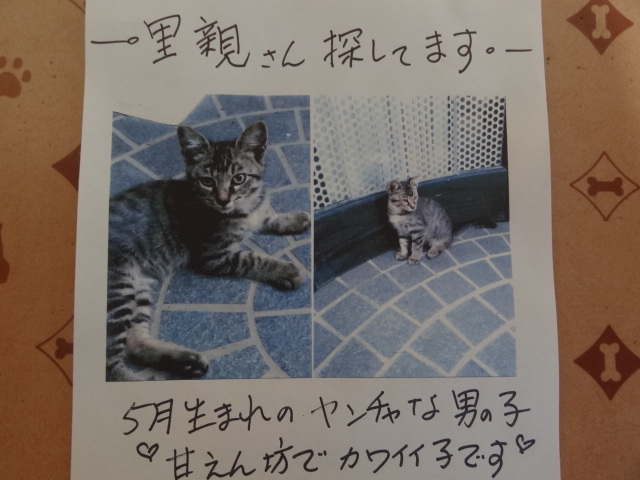 里親さん探してます。
5月生まれのヤンチャな男の子
♡甘えん坊でカワイイ子です♡